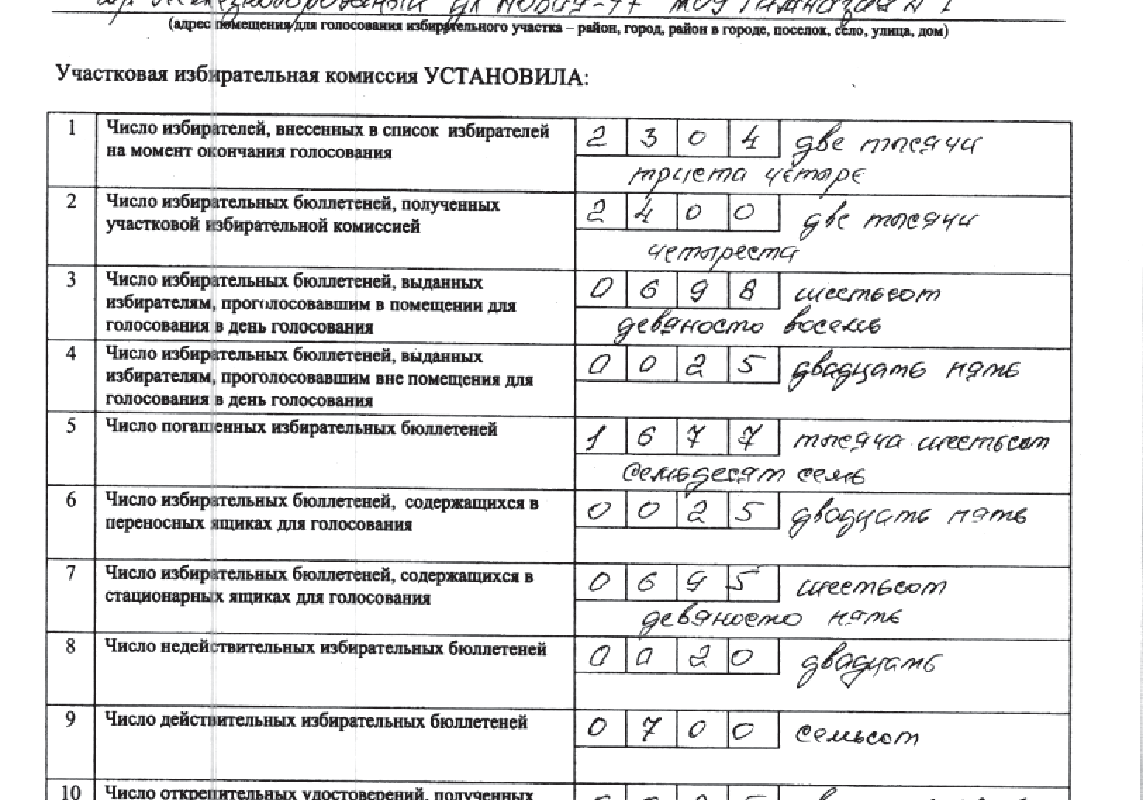 (адрес помещения для голосования избирательного участка – район, город, район в городе, поселок, село, улица, дом)
Участковая избирательная комиссия УСТАНОВИЛА:
1 Число избирателей, внесенных в список избирателей 2 3 0 4 две тысячи
на момент окончания голосования триста четыре
2 Число избирательных бюллетеней, полученных 2 4 0 0 две тысячи
участковой избирательной комиссией четыреста
3 Число избирательных бюллетеней, выданных 0 6 9 8 шестьсот
избирателям, проголосовавшим в помещении для
голосования в день голосования девяносто восемь
4 Число избирательных бюллетеней, выданных 0 0 2 5 двадцать пять
избирателям, проголосовавшим вне помещения для
голосования в день голосования
5 Число погашенных избирательных бюллетеней 1 6 7 7 тысяча шестьсот
семьдесят семь
6 Число избирательных бюллетеней, содержащихся в 0 0 2 5 двадцать пять
переносных ящиках для голосования
7 Число избирательных бюллетеней, содержащихся в 0 6 9 5 шестьсот
стационарных ящиках для голосования девяносто пять
8 Число недействительных избирательных бюллетеней 0 0 2 0 двадцать
9 Число действительных избирательных бюллетеней 0 7 0 0 семьсот
10 Число открепительных удостоверений, полученных